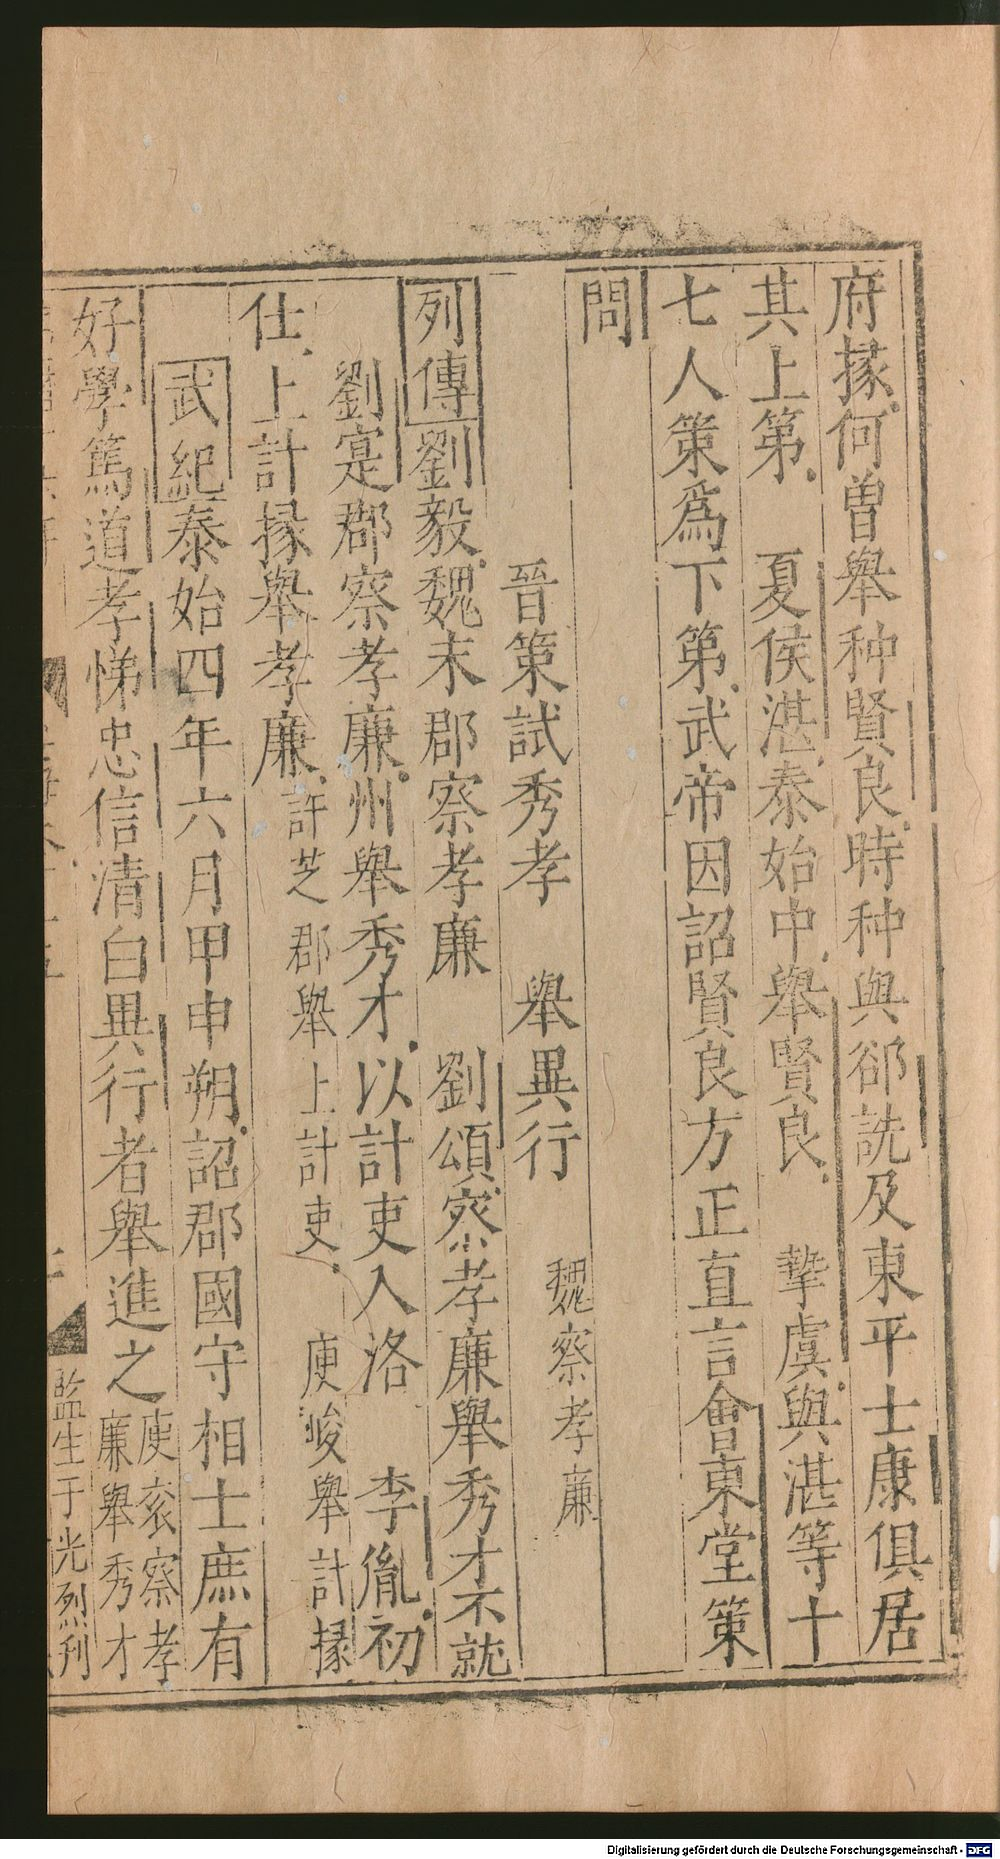 府掾何曽舉种賢良時种與郤詵及東平士康俱居
其上第　夏侯湛泰始中舉賢良　摯虞與湛等十
七人策爲下第武帝因詔賢良方正直言會東堂策
問
晉策試秀孝　舉異行　魏察孝廉
列傳劉毅魏末郡察孝廉　劉頌察孝廉舉秀才不就
劉寔郡察孝廉州舉秀才以計吏入洛　李胤初
仕上計掾舉孝廉許芝郡舉上計吏　庾峻舉計掾
武紀泰始四年六月甲申朔詔郡國守相士庶有
好學篤道孝悌忠信清白異行者舉進之庾衮察孝
廉舉秀才
監生于光烈刋
Digitalisierung gefördert durch die Deutsche Forschungsgemeinschaft - DFG